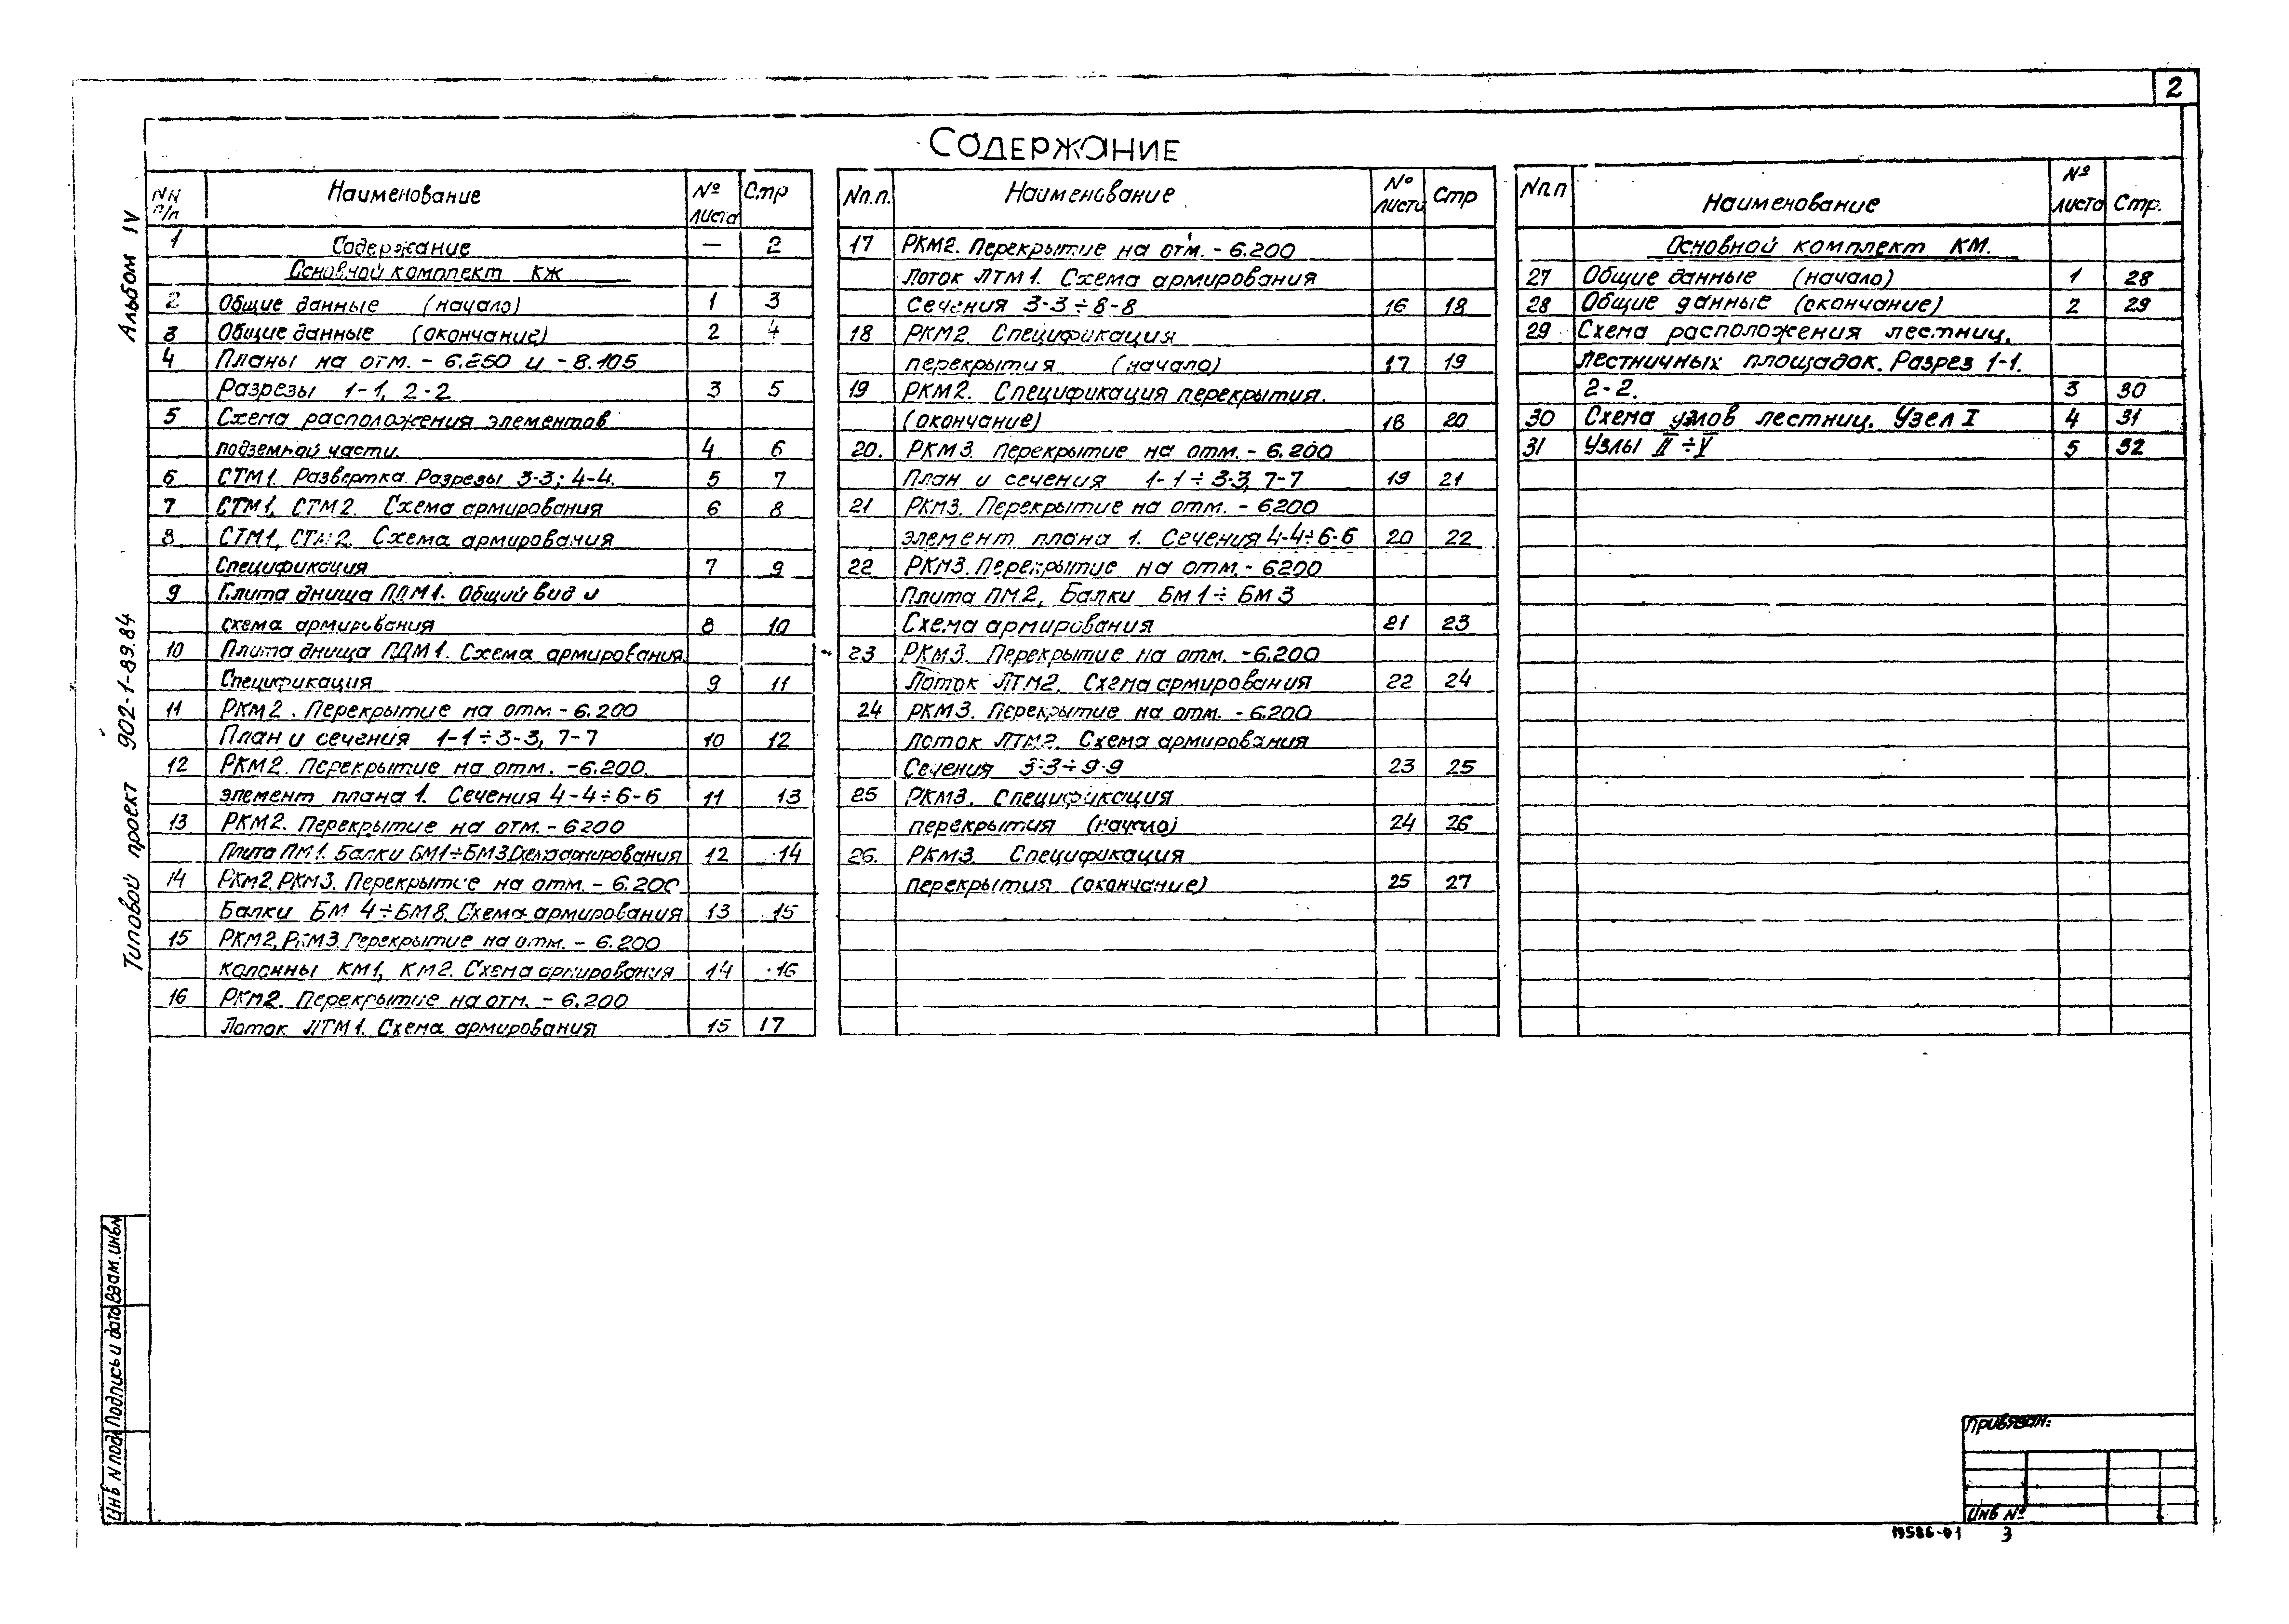 2
СОДЕРЖАНИЕ
Альбом IV
Типовой проект 902-1-89.84
NN п/п Наименование № листа Стр
1 Содержание — 2
Основной комплект КЖ
2 Общие данные (начало) 1 3
3 Общие данные (окончание) 2 4
4 Планы на отм. - 6.250 и - 8.105
Разрезы 1-1, 2-2 3 5
5 Схема расположения элементов
подземной части. 4 6
6 СТМ1. Развертка. Разрезы 3-3; 4-4. 5 7
7 СТМ1, СТМ2. Схема армирования 6 8
8 СТМ1, СТМ2. Схема армирования
Спецификация 7 9
9 Плита днища ПДМ1. Общий вид и
схема армирования 8 10
10 Плита днища ПДМ1. Схема армирования.
Спецификация 9 11
11 РКМ2. Перекрытие на отм - 6.200
План и сечения 1-1÷3-3, 7-7 10 12
12 РКМ2. Перекрытие на отм. -6.200.
элемент плана 1. Сечения 4-4÷6-6 11 13
13 РКМ2. Перекрытие на отм. - 6200
Плита ПМ1. Балки БМ1÷БМ3. Схема армирования 12 14
14 РКМ2, РКМ3. Перекрытие на отм. - 6.200
Балки БМ 4÷БМ8. Схема армирования 13 15
15 РКМ2, РКМ3. Перекрытие на отм. - 6.200
колонны КМ1, КМ2. Схема армирования 14 16
16 РКМ2. Перекрытие на отм. - 6.200
Лоток ЛТМ1. Схема армирования 15 17
Nп.п. Наименование № листа Стр
17 РКМ2. Перекрытие на отм. - 6.200
Лоток ЛТМ1. Схема армирования
Сечения 3-3÷8-8 16 18
18 РКМ2. Спецификация
перекрытия (начало) 17 19
19 РКМ2. Спецификация перекрытия.
(окончание) 18 20
20. РКМ3. Перекрытие на отм. - 6.200
План и сечения 1-1÷3-3, 7-7 19 21
21 РКМ3. Перекрытие на отм. - 6200
элемент плана 1. Сечения 4-4÷6-6 20 22
22 РКМ3. Перекрытие на отм. - 6200
Плита ПМ2, Балки БМ1÷БМ3
Схема армирования 21 23
23 РКМ3. Перекрытие на отм. -6.200
Лоток ЛТМ2. Схема армирования 22 24
24 РКМ3. Перекрытие на отм. - 6.200
Лоток ЛТМ2. Схема армирования
Сечения 3-3÷9-9 23 25
25 РКМ3. Спецификация
перекрытия (начало) 24 26
26. РКМ3. Спецификация
перекрытия (окончание) 25 27
Nп.п Наименование № листа Стр.
Основной комплект КМ.
27 Общие данные (начало) 1 28
28 Общие данные (окончание) 2 29
29 Схема расположения лестниц,
лестничных площадок. Разрез 1-1.
2-2. 3 30
30 Схема узлов лестниц. Узел I 4 31
31 Узлы II÷V 5 32
Инв N подл Подпись и дата Взам. инв.N
Привязан:
Инв №
19586-01 3